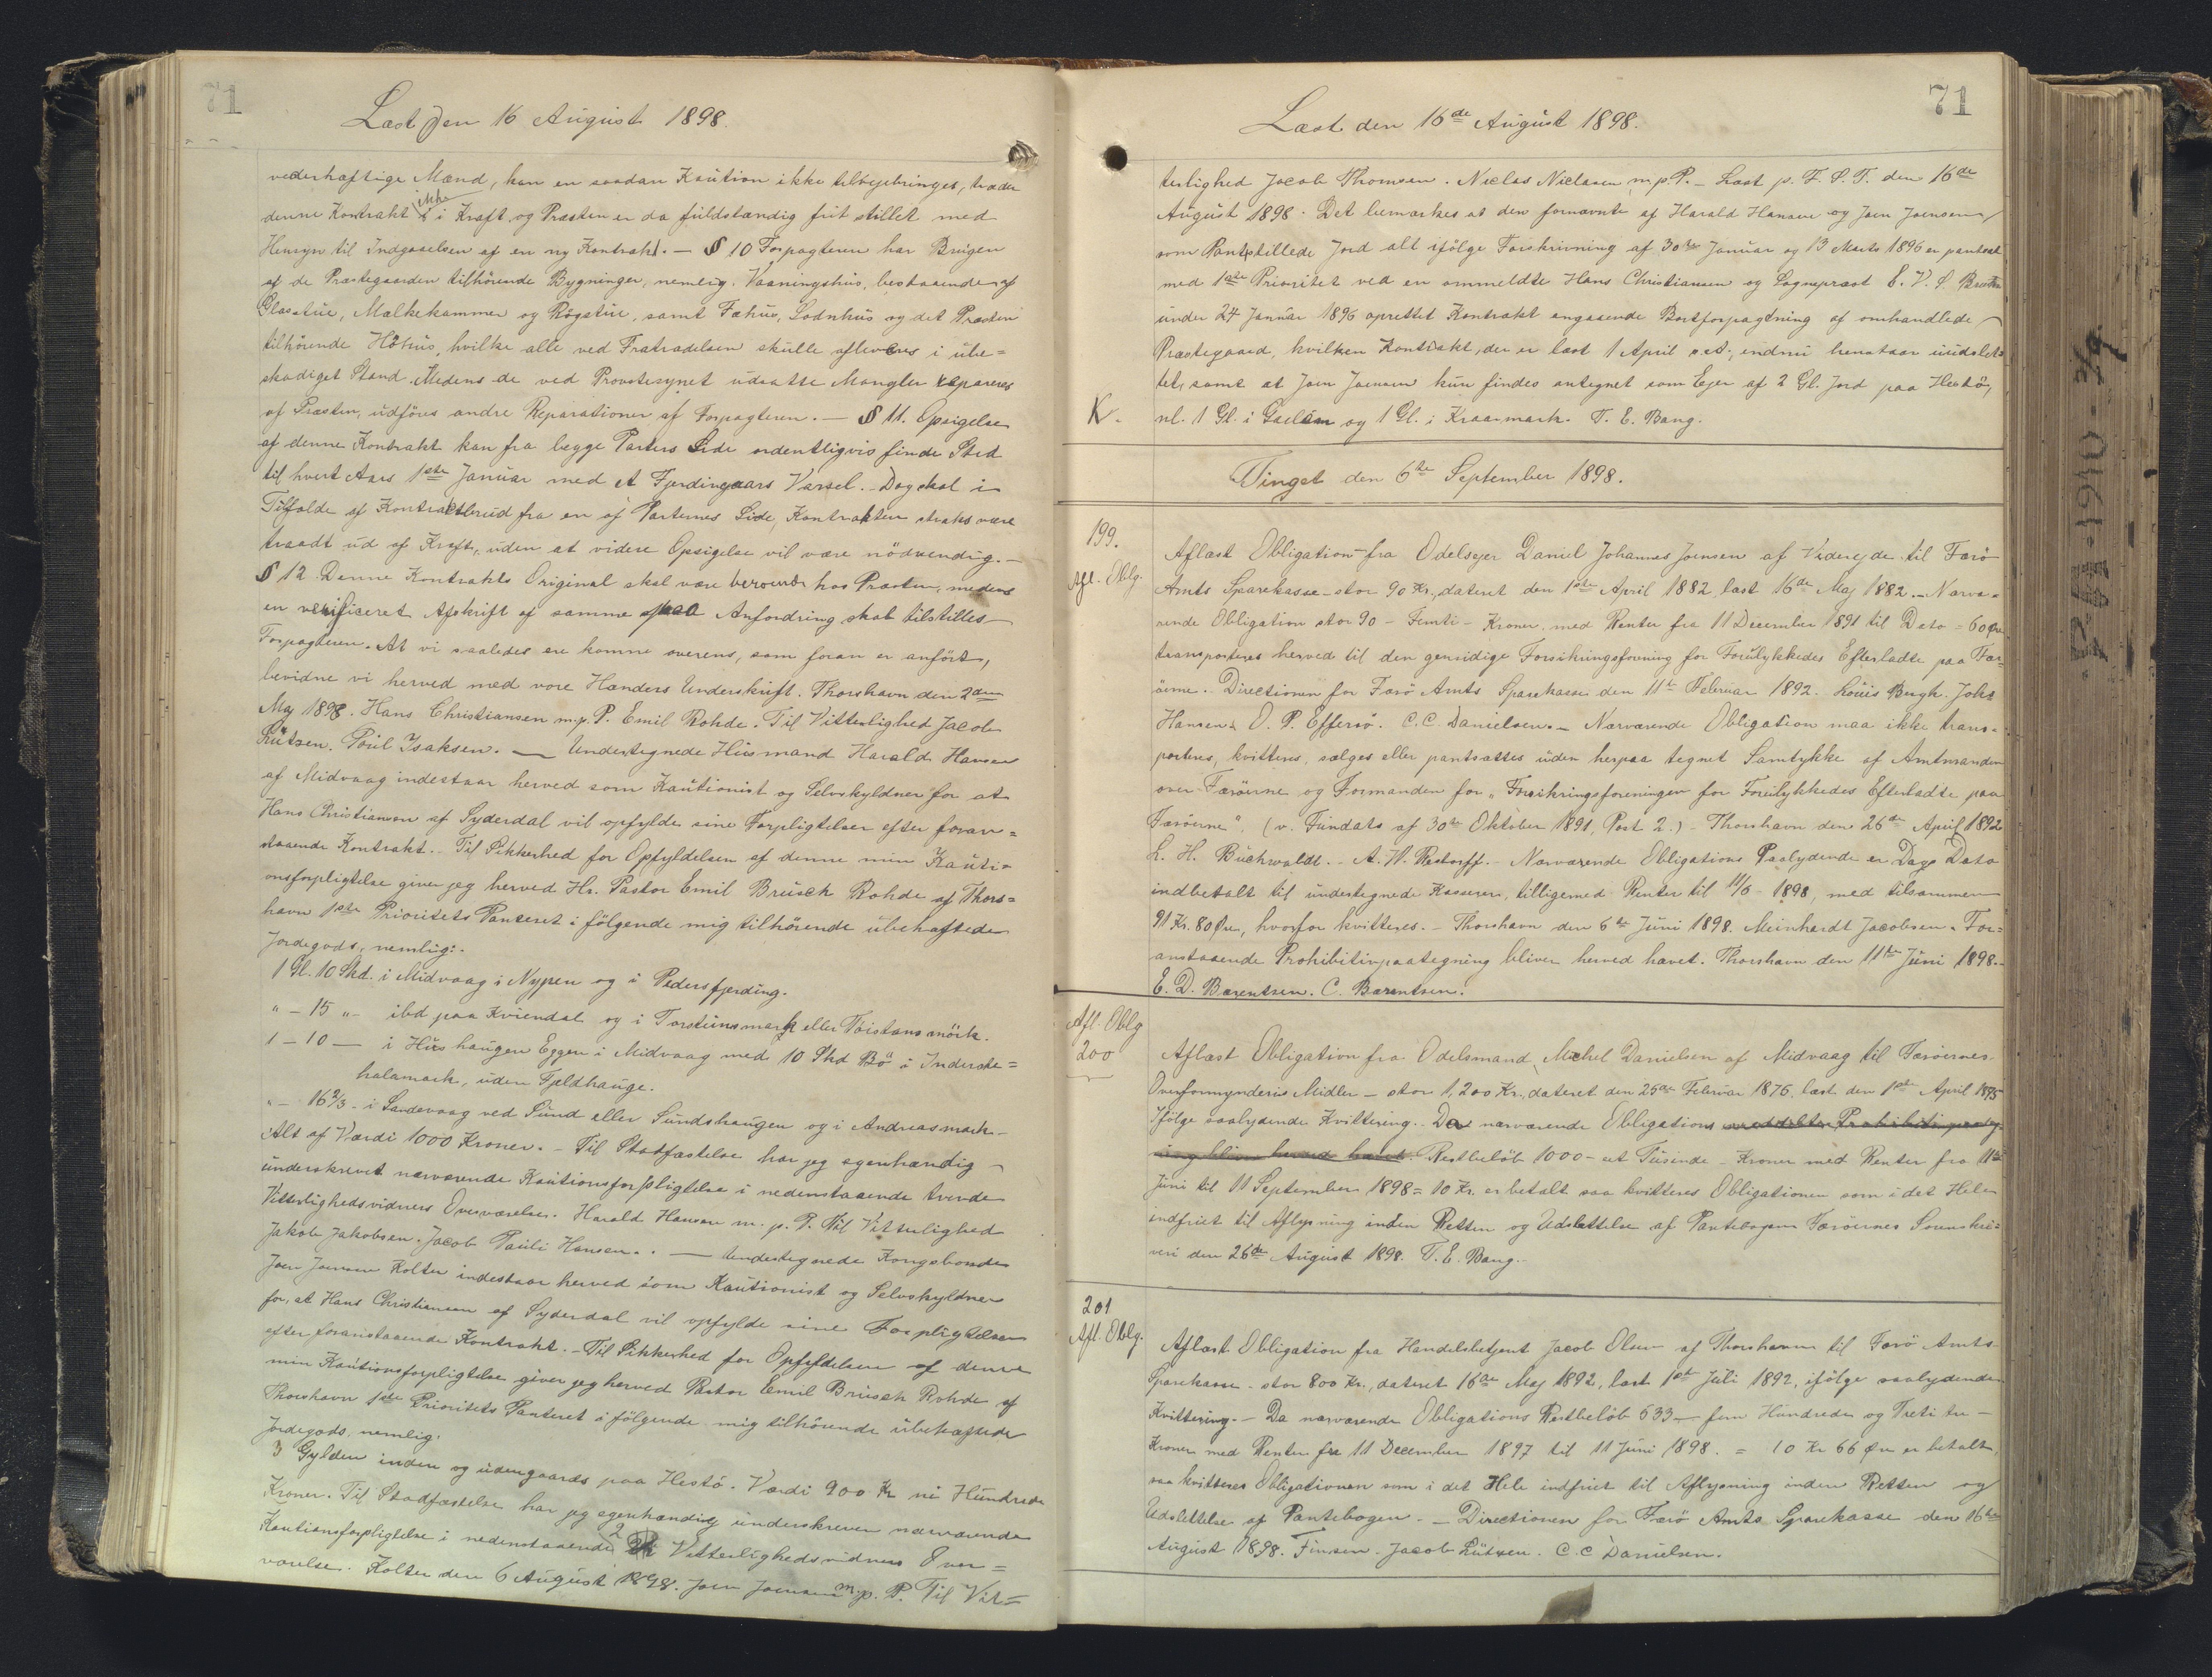 71
Læst den 16 August 1898.
vederhæftige Mænd, kan en saadan Kaution ikke tilvejebringes, træder
denne Kontrakt ikke i Kraft, og Præsten er da fuldstændig frit stillet med
Hensyn til Indgaaelsen af en ny Kontrakt. — § 10 Forpagteren har Brugen
af de Præstegaarden tilhörende Bygninger, nemlig: Vaaningshus, bestaaende af
Glasstue, Malkekammer og Rögstue, samt Fæhus, Sodnhus og det Præsten
tilhörende Höhus, hvilke alle ved Fratrædelsen skulle afleveres i ube=
skadiget Stand. Medens de ved Provstesynet udsatte Mangler repareres
af Præsten, udföres andre Reparationer af Forpagteren. — § 11. Opsigelse
af denne Kontrakt kan fra begge Parters Side ordentligvis finde Sted
til hvert Aars 1ste Januar med et Fjerdingaars Varsel. — Dog skal i
Tilfælde af Kontraktbrud fra en af Parternes Side, Kontrakten straks være
traadt ud af Kraft, uden at videre Opsigelse vil være nödvendig. —
§ 12. Denne Kontrakts Original skal være beroende hos Præsten, medens
en verificeret Afskrift af samme paa Anfordring skal tilstilles
Forpagteren. At vi saaledes ere komne overens, som foran er anfört,
bevidne vi herved med vore Hænders Underskrift. Thorshavn den 2den
Maj 1898. Hans Christiansen m.p.P. Emil Rohde. Til Vitterlighed Jacob
Lützen. Poul Isaksen. — Undertegnede Husmand Harald Hansen
af Midvaag indestaar herved som Kautionist og Selvskyldner for at
Hans Christiansen af Syderdal vil opfylde sine Forpligtelser efter foran=
staaende Kontrakt. — Til Sikkerhed for Opfyldelsen af denne min Kauti=
onsforpligtelse giver jeg herved Hr. Pastor Emil Brusch Rohde af Thors=
havn 1ste Prioritets Panteret i fölgende mig tilhörende ubehæftede
Jordegods, nemlig:
1 Gl. 10 Skd. i Midvaag i Nypen og i Pedersfjerding.
" — 15 " — ibd paa Kviendal og i Torstunsmark eller Toistansmörk.
1 — 10 — i Hüshaugen Eggen i Midvaag med 10 Skd Bö i Inderste=
halamark, uden Fjeldhauge.
" — 16 2/3 — i Sandevaag ved Sund eller Sundshaugen og i Andreasmark —
Alt af Værdi 1000 Kroner. — Til Stadfæstelse har jeg egenhændig
underskrevet nærværende Kautionsforpligtelse i nedenstaaende tvende
Vitterlighedsvidners Overværelse. Harald Hansen m. p. P. Til Vitterlighed
Jakob Jakobsen. Jacob Pauli Hansen. — Undertegnede Kongsbonde
Joen Joensen Kolter indestaar herved som Kautionist og Selvskyldner
for, at Hans Christiansen af Syderdal vil opfylde sine Forpligtelser
efter foranstaaende Kontrakt. — Til Sikkerhed for Opfyldelsen af denne
min Kautionsforpligtelse giver jeg herved Pastor Emil Brusch Rohde af
Thorshavn 1ste Prioritets Panteret i fölgende mig tilhörende ubehæftede
Jordegods, nemlig:
3 Gylden inden og udengaards paa Hestö. Værdi 900 Kr ni Hundrede
Kroner. Til Stadfæstelse har jeg egenhændig underskreven nærværende
Kautionsforpligtelse i nedenstaaende 2 Vitterlighedsvidners Over=
værelse. Kolter den 6 August 1898. Joen Joensen m.p. P. Til Vit=
71
Læst den 16de August 1898.
terlighed Jacob Thomsen. Niclas Niclasen m.p.P. — Læst p. F. S. T. den 16de
August 1898. Det bemærkes at den fornævnte af Harald Hansen og Joen Joensen
som Pantstillede Jord alt ifölge Forskrivning af 30te Januar og 13 Marts 1896 er pantsat
med 1ste Prioritet ved en ommeldte Hans Christiansen og Sognepræst
under 24 Januar 1896 oprettet Kontrakt angaaende Bortforpagtning af omhandlede
Præstegaard, hvilken Kontrakt, der er læst 1 April s. A., endnu henstaar uudslet=
tet, samt at Joen Joensen kun findes antegnet som Ejer af 2 Gl. Jord paa Hestö,
K. nl. 1 Gl. i og 1 Gl. i Kraamark. T. E. Bang.
Tinget den 6te September 1898.
199.
Afl. Oblg.
Aflæst Obligation fra Odelsejer Daniel Johannes Joensen af Viderejde til Færö
Amts Sparekasse — stor 90 Kr., dateret den 1ste April 1882, læst 16de Maj 1882. — Nærvæ=
rende Obligation stor 90 — Femti — Kroner, med Renter fra 11 December 1891 til Dato = 60 Øre
transporteres herved til den gensidige Forsikringsforening for Forulykkedes Efterladte paa Fær=
öerne. Directionen for Færö Amts Sparekasse den 11te Februar 1892. Louis Bergh. Johs
Hansen. O. P. Effersö. C. C. Danielsen. — Nærværende Obligation maa ikke trans=
porteres, kvitteres, sælges eller pantsættes uden herpaa tegnet Samtykke af Amtmanden
over Færöerne og Formanden for „Forsikringsforeningen for Forulykkedes Efterladte paa
Færöerne". (v. Fundats af 30te Oktober 1891, Post 2.) — Thorshavn den 26de April 1892
L. H. Buchwaldt. — A. W. Restorff. — Nærværende Obligations Paalydende er Dags Dato
indbetalt til undertegnede Kasserer, tilligemed Renter til 11/6 1898, med tilsammen
91 Kr. 80 Øre, hvorfor kvitteres. — Thorshavn den 6te Juni 1898. Meinhardt Jacobsen. For=
anstaaende Prohibitivpaategning bliver herved hævet. Thorshavn den 11te Juni 1898. —
E. D. Bærentsen. C. Bærentsen.
Afl. Oblg
200
Aflæst Obligation fra Odelsmand Michel Danielsen af Midvaag til Færöernes
Overformynderis Midler — stor 1,200 Kr., dateret den 25de Februar 1876, læst den 1ste April 1875
Ifölge saalydende Kvittering. Da nærværende Obligations meddelte Prohibitivpaateg
ning bliver herved hævet. Restbelöb 1000 — et Tusinde — Kroner med Renter fra 11te
Juni til 11 September 1898 = 10 Kr. er betalt saa kvitteres Obligationen som i det Hele
indfriet til Aflysning inden Retten og Udslettelse af Pantebogen Færöernes Sorenskri=
veri den 26de August 1898. T. E. Bang.
201
Afl. Oblg.
Aflæst Obligation fra Handelsbetjent Jacob Olsen af Thorshavn til Færö Amts
Sparekasse — stor 800 Kr., dateret 16de Maj 1892, læst 1ste Juli 1892, ifölge saalydende
Kvittering. — Da nærværende Obligations Restbelöb 533 — fem Hundrede og Treti tre —
Kroner med Renter fra 11 December 1897 til 11 Juni 1898. = 10 Kr 66 Øre er betalt
saa kvitteres Obligationen som i det Hele indfriet til Aflysning inden Retten og
Udslettelse af Pantebogen. — Directionen for Færö Amts Sparekasse den 16de
August 1898. Finsen. Jacob Lützen. C. C Danielsen.